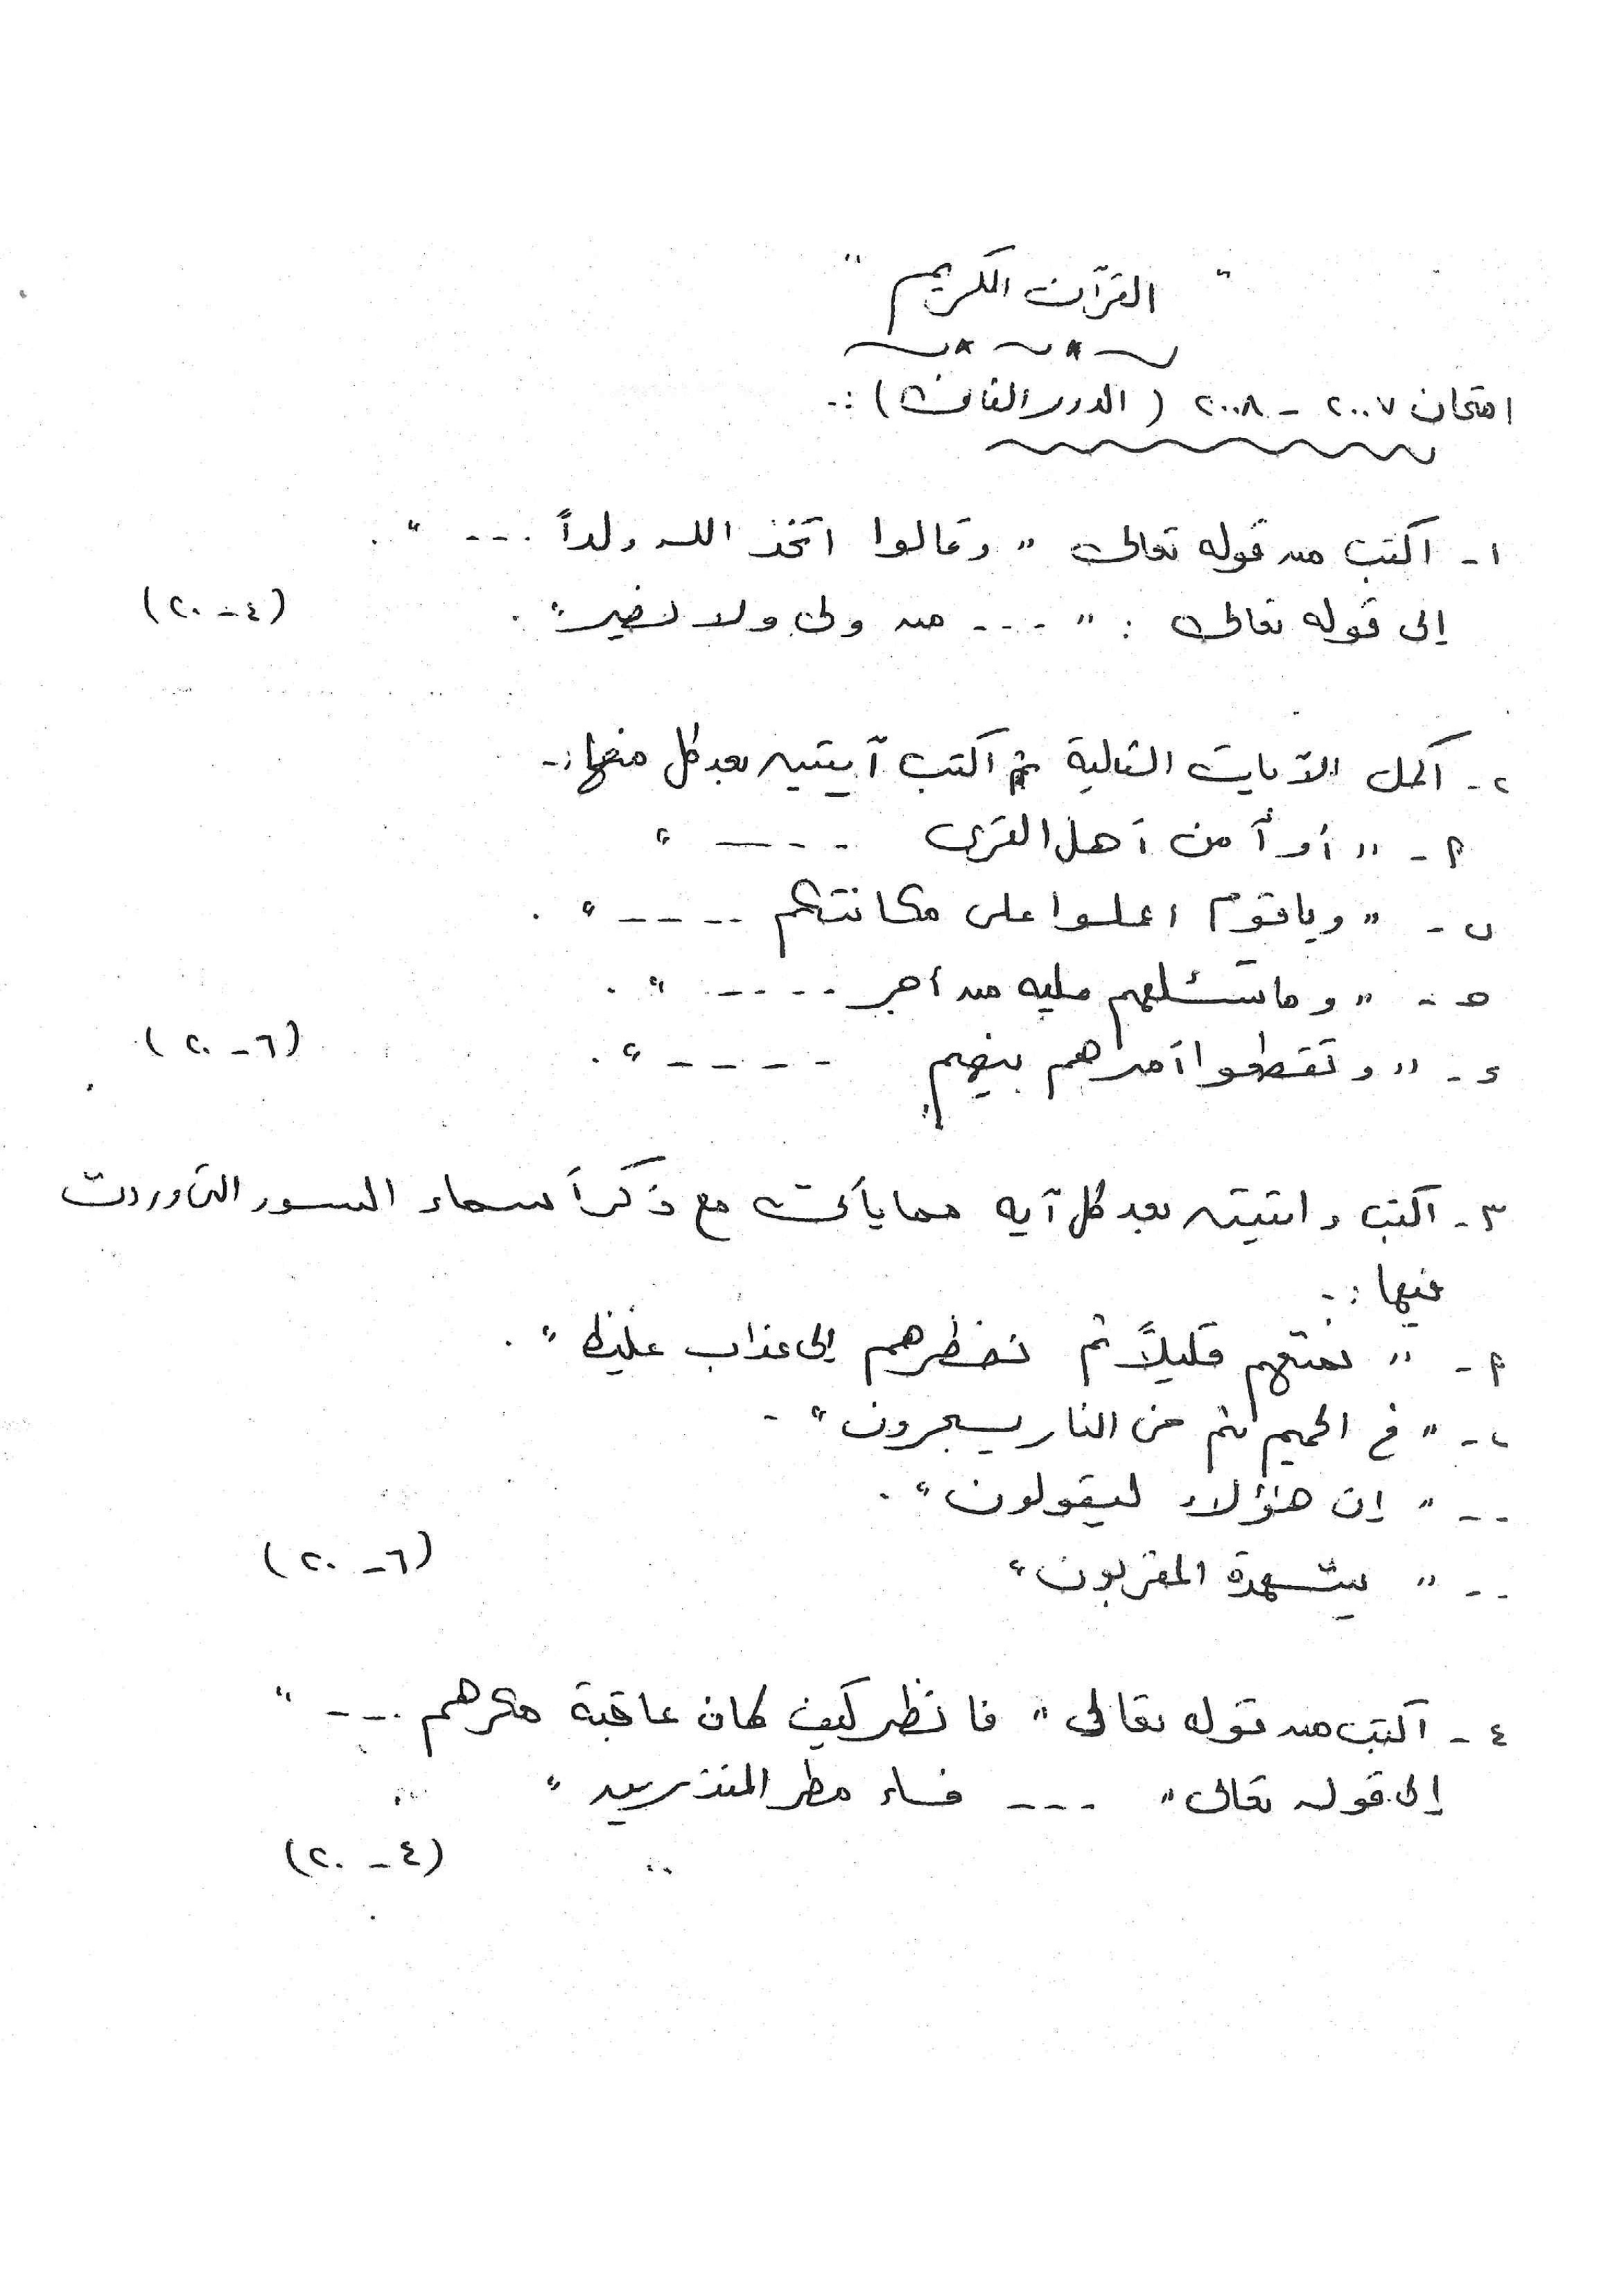 " القرآن الكريم "
امتحان ٢٠٠٧ - ٢٠٠٨ ( الدور الثانى ) :-
١- اكتب من قوله تعالى " وقالوا اتخذ الله ولداً ---- " .
إلى قوله تعالى : " ---- من ولى ولا نصير " . (٤ - ٢٠)
٢- أكمل الآيات التالية ثم اكتب آيتين بعد كل منها :-
أ - " أو أمن أهل القرى ---- "
ب - " وياقوم اعملوا على مكانتكم ---- " .
ج - " وما تسئلهم عليه من أجر ---- " .
د - " وتقطعوا أمرهم بينهم ---- " . (٦ - ٢٠)
٣- اكتب واثنتين بعد كل آيه مما يأتى مع ذكر أسماء السور التى وردت
فيها :-
أ - " نمتعهم قليلاً ثم نضطرهم إلى عذاب غليظ " .
ب - " فى الحميم ثم فى النار يسجرون " -
- - " إن هؤلاء ليقولون " .
- - " يشهده المقربون " (٦ - ٢٠)
٤ - اكتب من قوله تعالى " فانظر كيف كان عاقبة مكرهم ---- "
إلى قوله تعالى " ---- فساء مطر المنذرين "
(٤ - ٢٠)